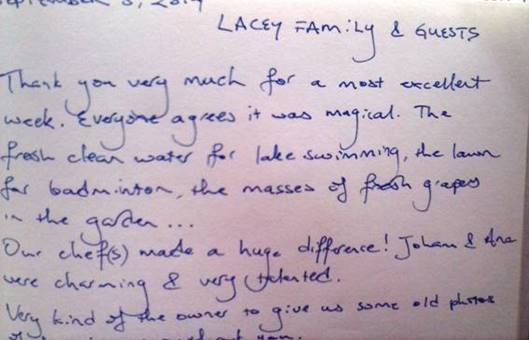 September 5, 2014
LACEY FAMILY & GUESTS
Thank you very much for a most excellent
week. Everyone agrees it was magical. The
fresh clean water for lake swimming, the lawn
for badminton, the masses of fresh grapes
in the garden...
Our chef(s) made a huge difference! Johan & Ana
were charming & very talented.
Very kind of the owner to give us some old photos